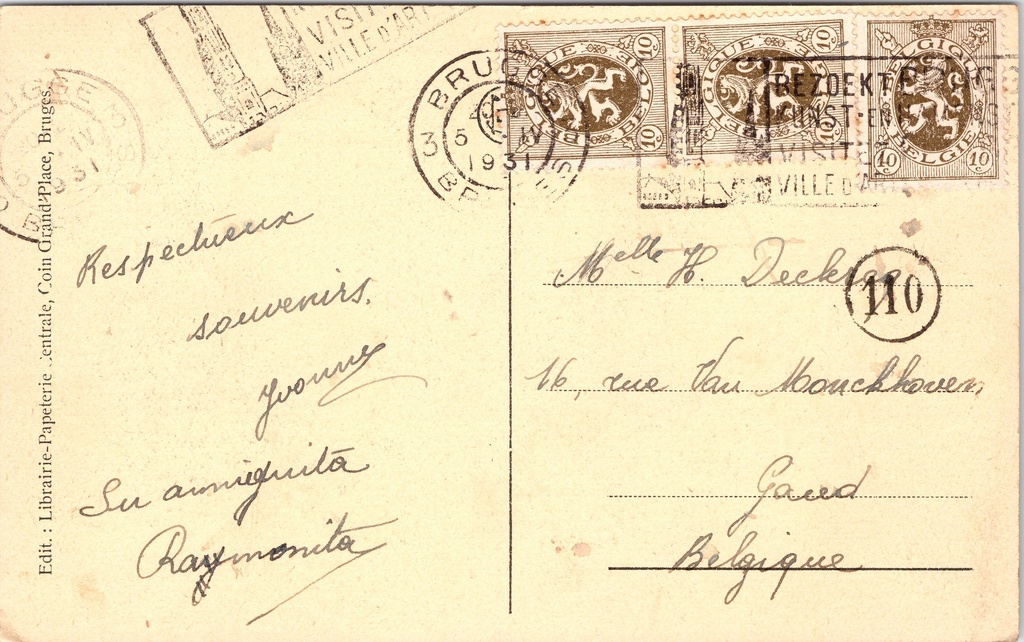 VISITE
VILLE D'ART
BRUGGE 3
5 IV
1931
3 BRUG
5 IV
1931
BELGIQUE
BELGIË
10
10
BELGIQUE
BELGIË
10
10
BELGIQUE
BELGIE
10 10
BEZOEKT
KUNST-EN
VISITE
VILLE D'ART
Edit. : Librairie-Papeterie Centrale, Coin Grand'Place, Bruges.
Respectueux
souvenirs.
Yvonne
Su amiguita
Raymonita
Melle H. Deckrac
110
16, rue Van Monckhoven,
Gand
Belgique